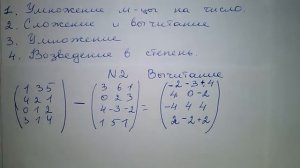 1. Умножение м-цы на число.
2. Сложение и вычитание
3. Умножение
4. Возведение в степень.
N2 Вычитание
(1 3 5) (3 6 1) (-2 -3 +4)
(4 2 1) − (0 2 3) = (4 0 -2)
(0 1 2) (4 -3 -2) (-4 4 4)
(3 1 4) (1 5 1) (2 -2 +2)